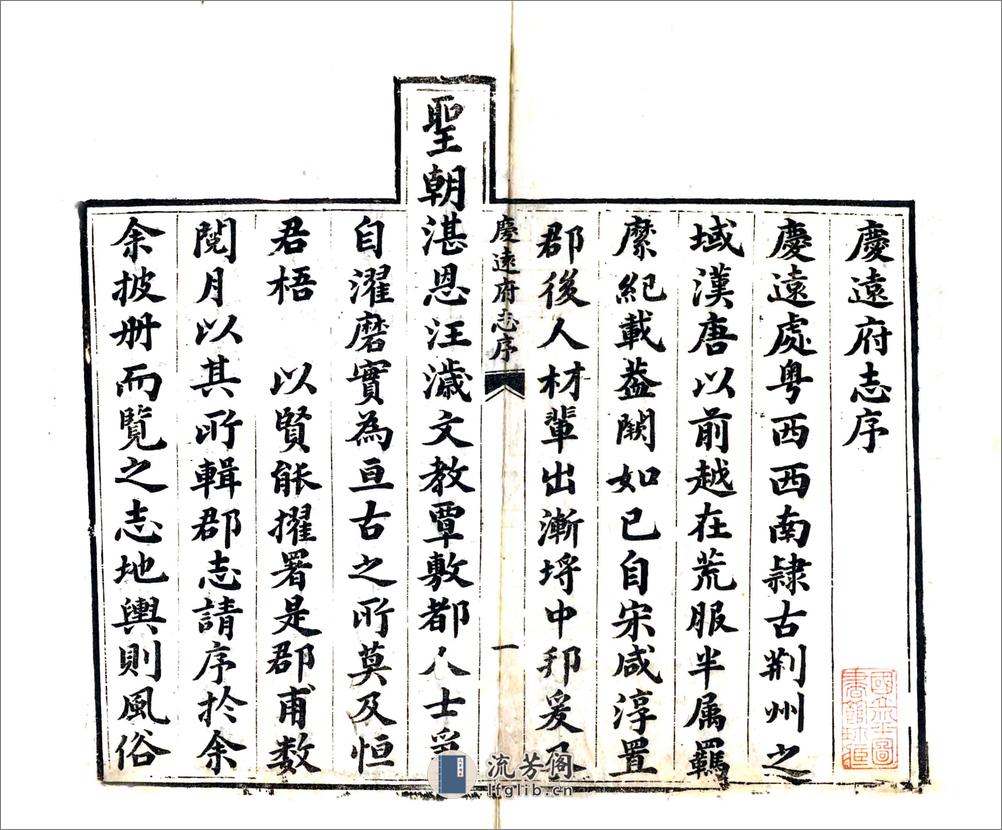 慶遠府志序
慶遠處粤西西南隸古荆州之
域漢唐以前越在荒服半属羈
縻紀載葢闕如已自宋咸淳置
郡後人材輩出漸埒中邦爰
慶遠府志序 一
聖朝湛恩汪濊文教覃敷都人士
自濯磨實為亘古之所莫及恒
君梧 以賢能擢署是郡甫数
閱月以其所輯郡志請序於余
余披册而覽之志地輿則風俗
國立北平圖
書館珍藏
流芳阁
lfglib.cn